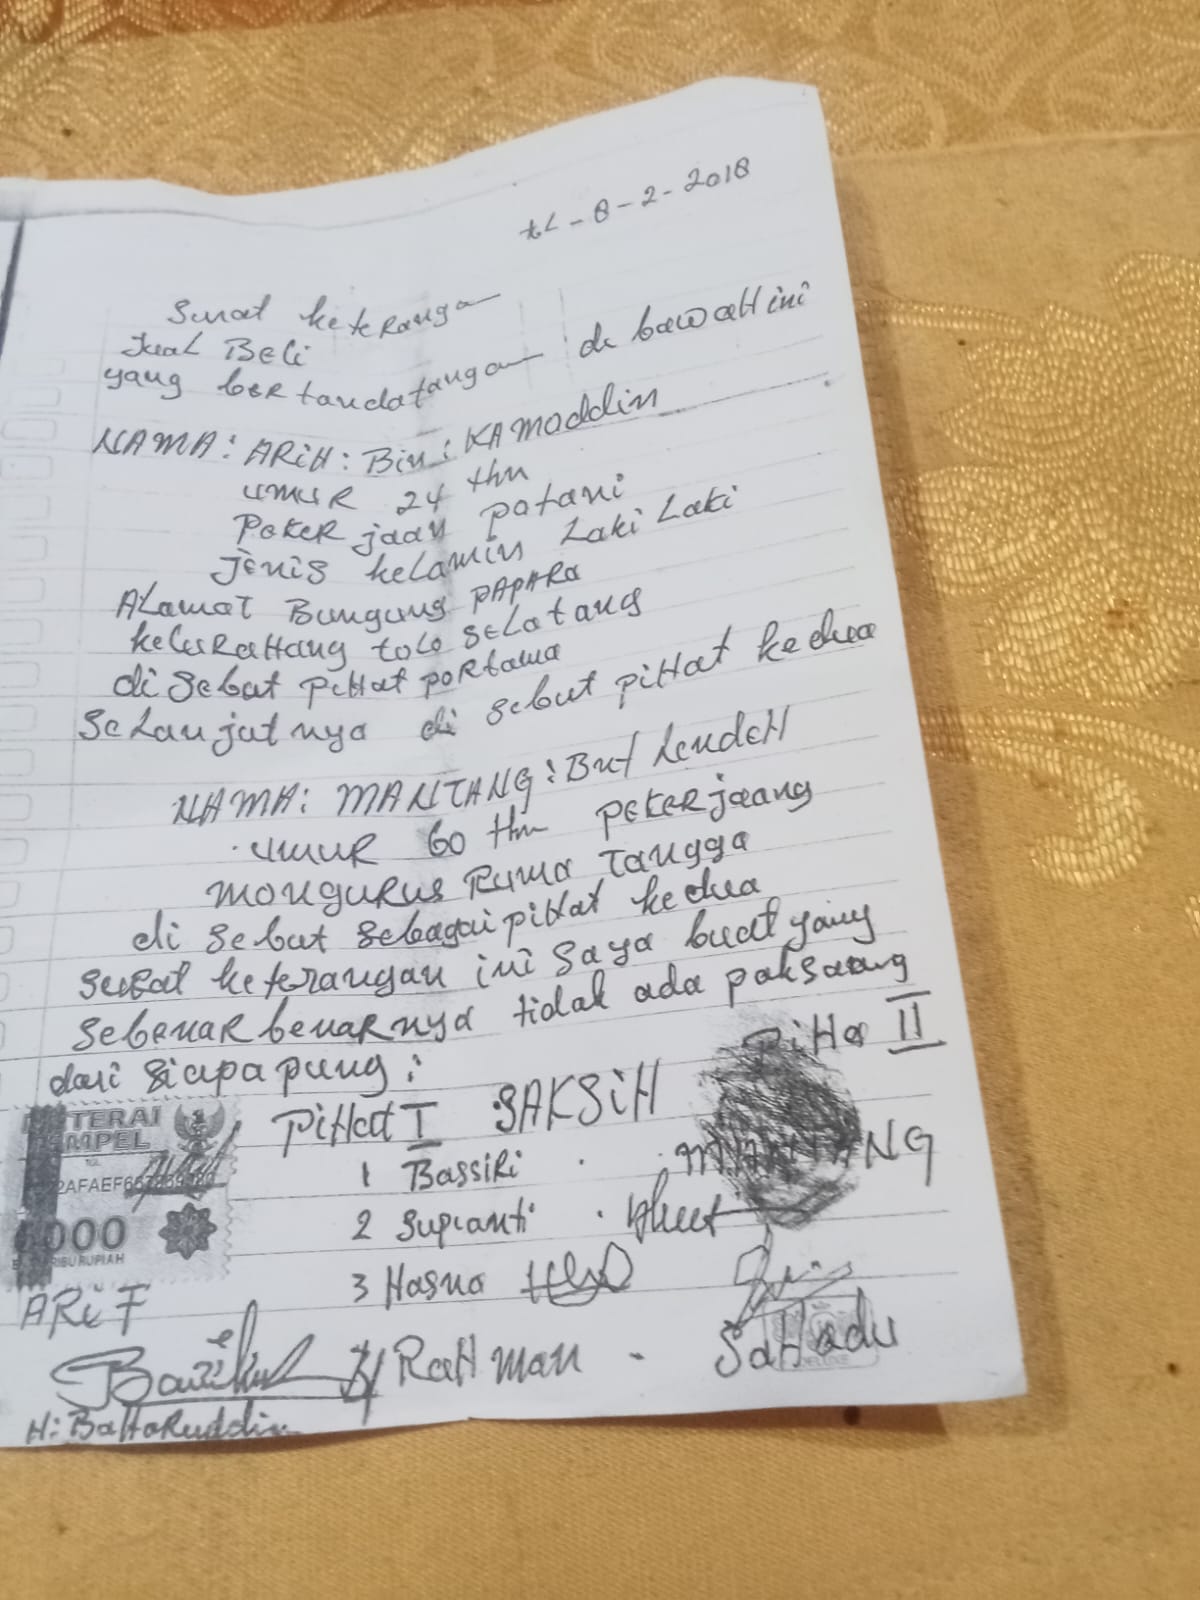 tL - 8 - 2 - 2018
Surat keteranga
Jual Beli
yang bertandatangan di bawaH ini
NAMA : ARiH : Bin : KAModdin
umuR 24 thn
PekeR jaan patani
Jenis keLamin Laki Laki
ALamat Bungung PAPARa
keLuRaHang toLo seLatang
di sebut piHat pertama
seLanjutnya di sebut piHat kedua
NAMA : MANTANG : But LendeH
umuR 60 thn PekeRjaang
mengurus Ruma Tangga
di sebut sebagai piHat kedua
surat keterangan ini saya buat yang
sebenaR benaRnya tidak ada paksaang
dari siapapung :
PiHat I SAKSiH PiHa II
METERAI
TEMPEL
TGL
000
RIBU RUPIAH
1 Bassiri MANTANG
2 Supianti
3 Hasna
ARiF
RaHman SaHadu
H: BaHaRuddin